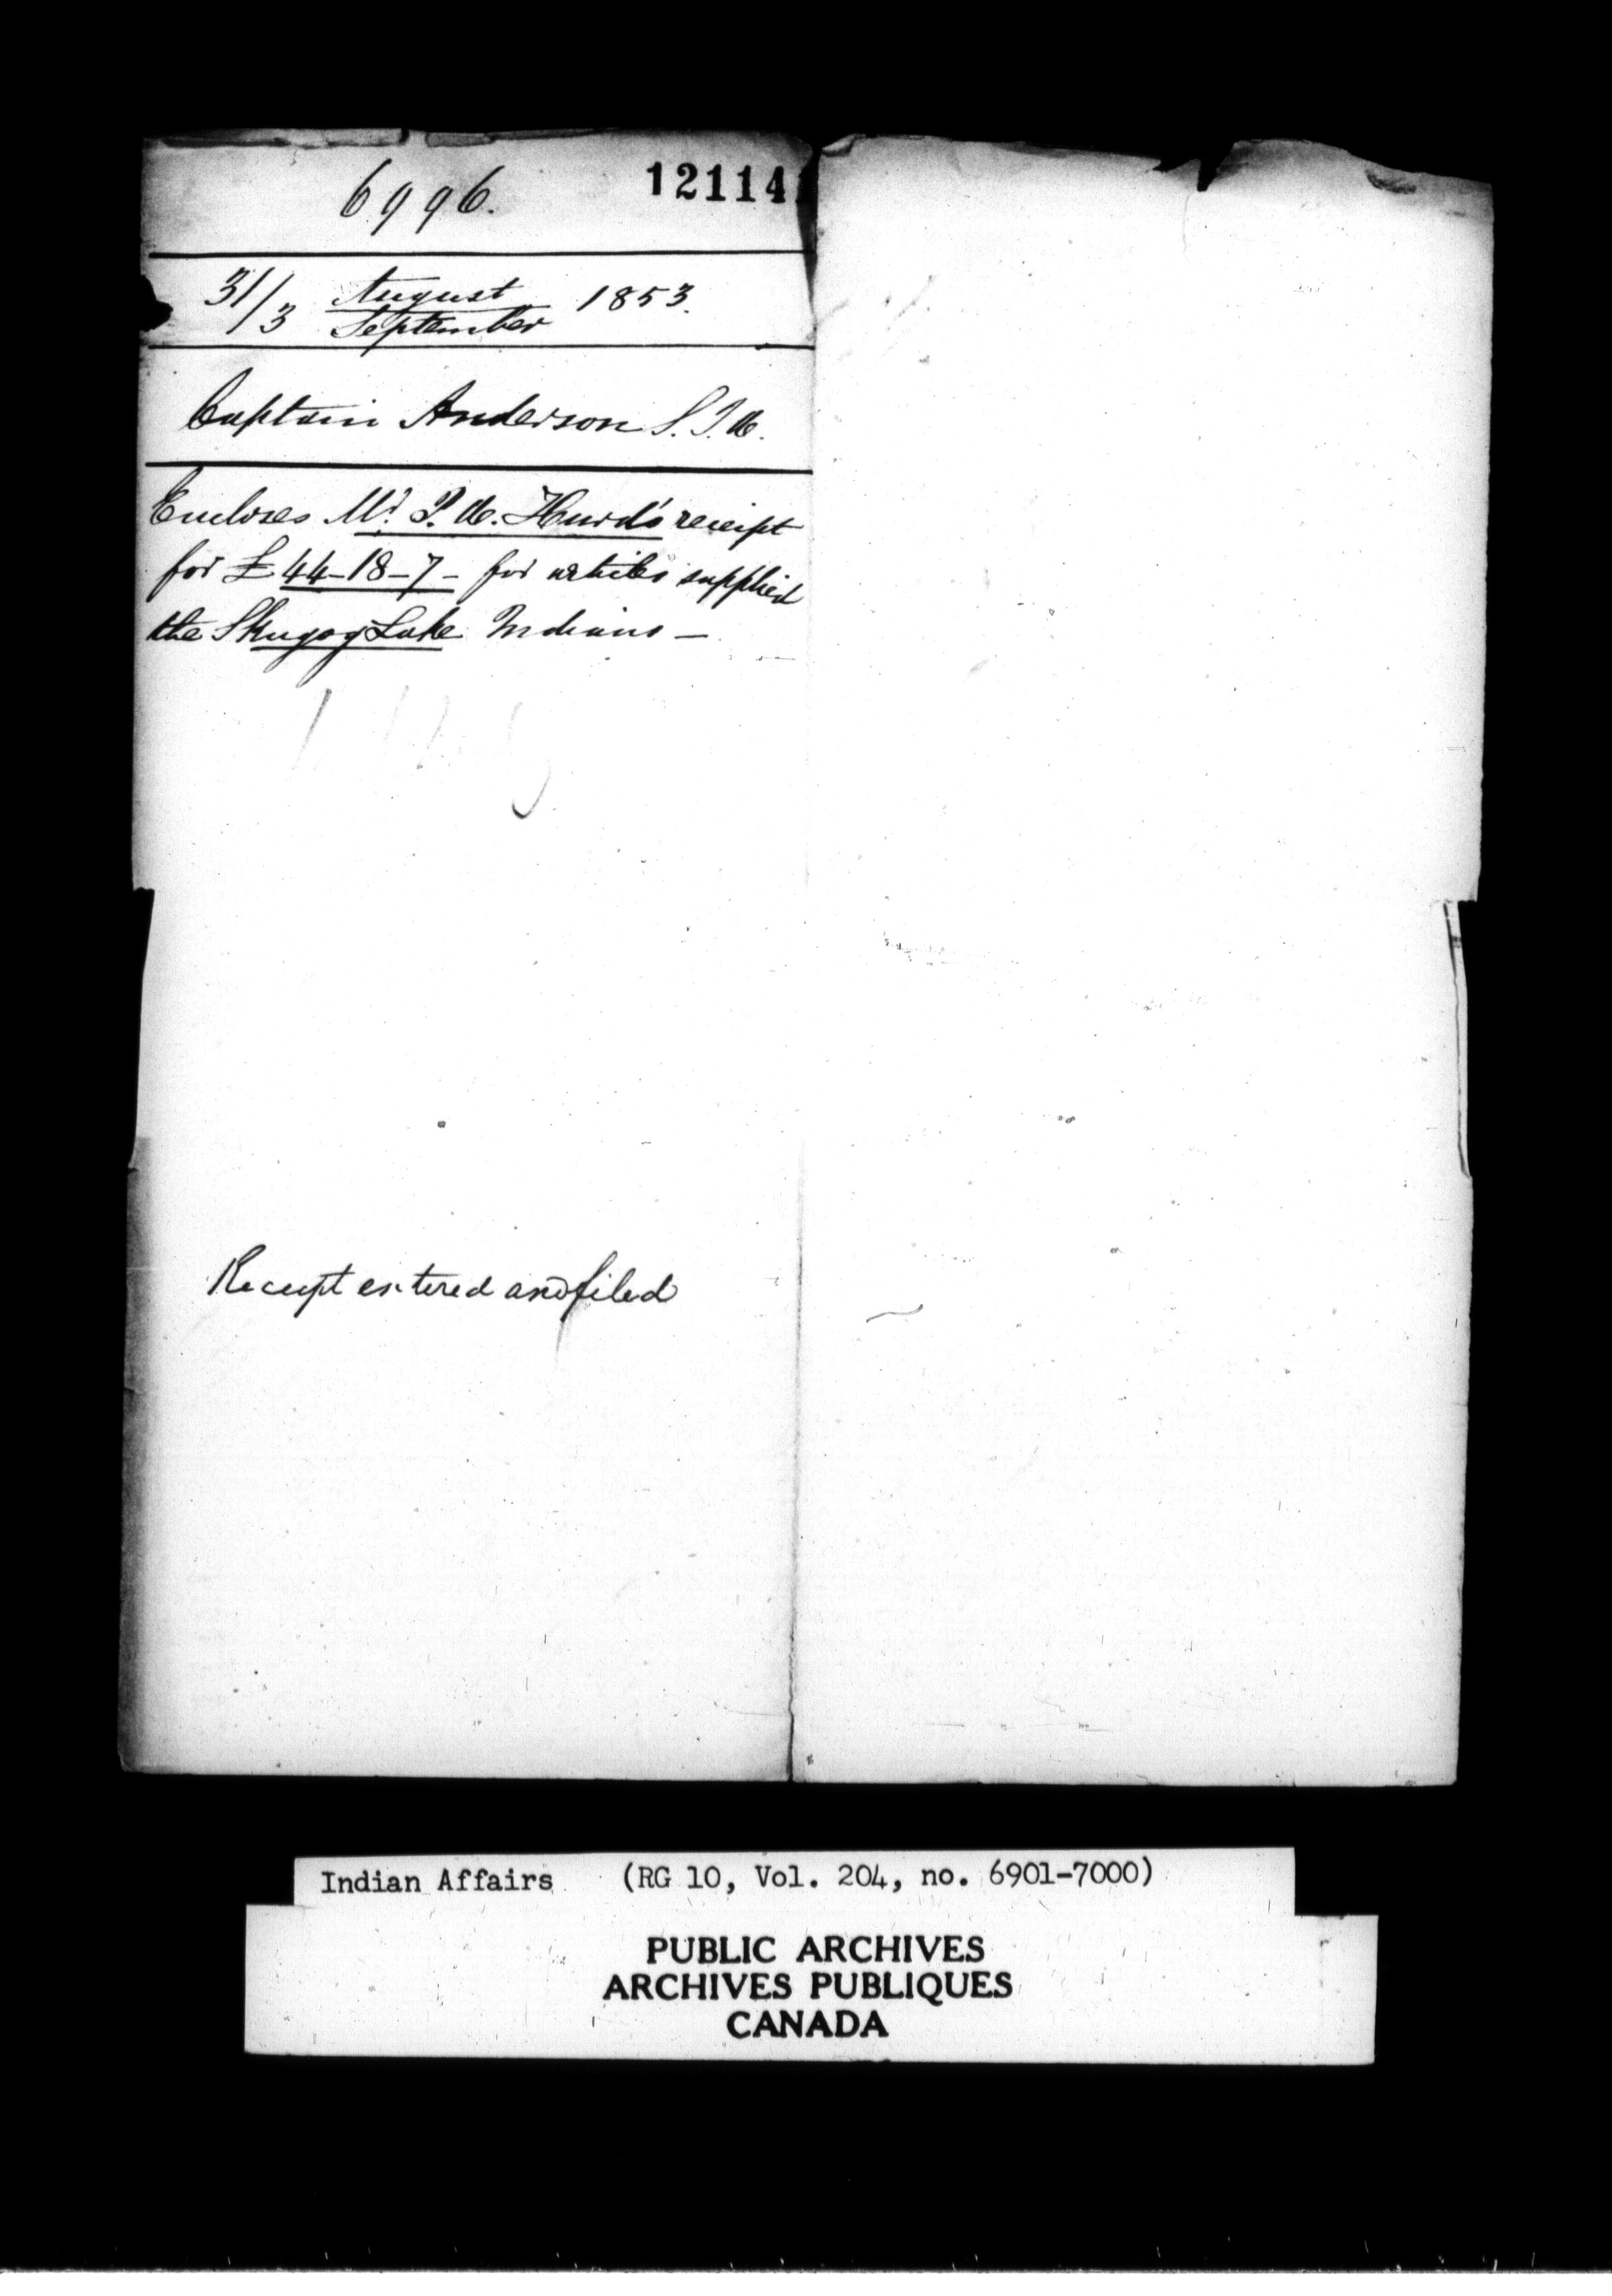 6996.
121141
31/3 August
September 1853.
Captain Anderson S.I.A.
Encloses Mr. T. A. Hurd's receipt
for £ 44-18-7- for articles supplied
the Skugog Lake Indians -
Receipt entered and filed
Indian Affairs (RG 10, Vol. 204, no. 6901-7000)
PUBLIC ARCHIVES
ARCHIVES PUBLIQUES
CANADA